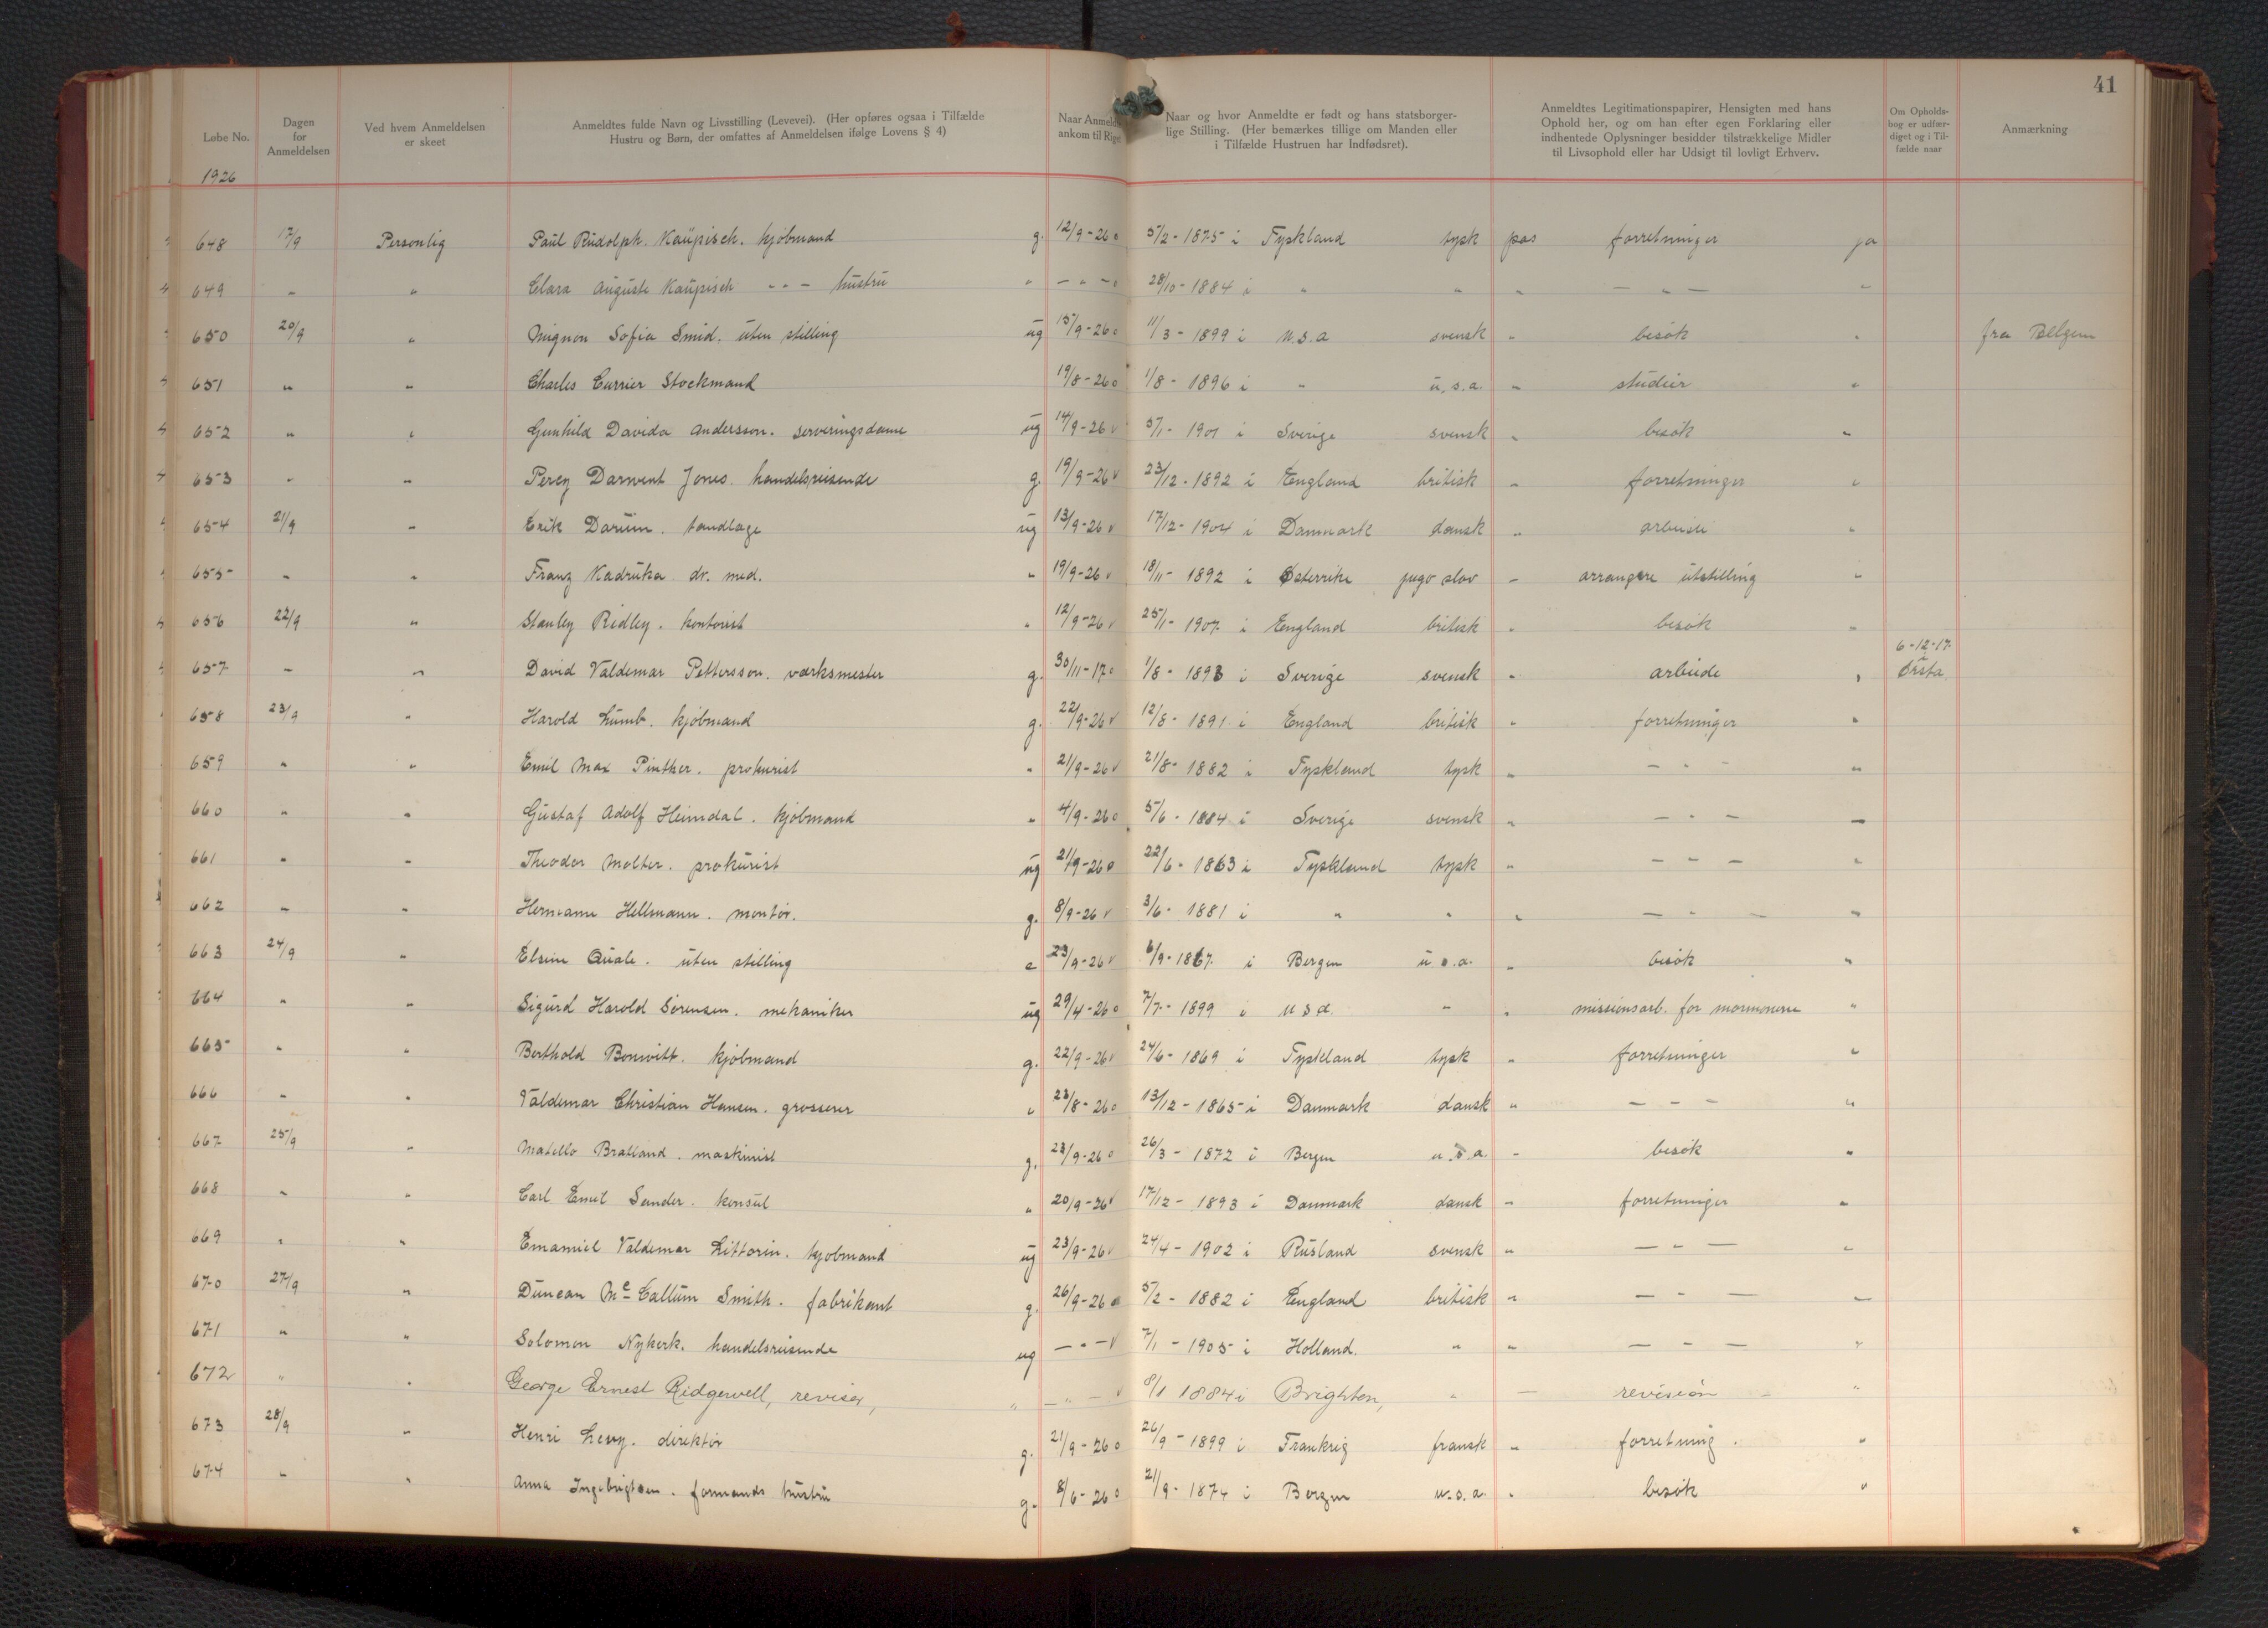 41
Løbe No. Dagen for Anmeldelsen Ved hvem Anmeldelsen er skeet Anmeldtes fulde Navn og Livsstilling (Levevei). (Her opføres ogsaa i Tilfælde Hustru og Børn, der omfattes af Anmeldelsen ifølge Lovens § 4) Naar Anmeldte ankom til Rige Naar og hvor Anmeldte er født og hans statsborgerlige Stilling. (Her bemærkes tillige om Manden eller i Tilfælde Hustruen har Indfødsret). Anmeldtes Legitimationspapirer, Hensigten med hans Ophold her, og om han efter egen Forklaring eller indhentede Oplysninger besidder tilstrækkelige Midler til Livsophold eller har Udsigt til lovligt Erhverv. Om Opholdsbog er udfærdiget og i Tilfælde naar Anmærkning
1926
648 17/9 Personlig Paul Rudolph. Kaupisch. kjøbmand g. 12/9-26 o 5/2-1875 i Tyskland tysk pas forretninger ja
649 " " Clara Auguste Kaupisch - " - hustru " - " - o 28/10-1884 i " " " - " - "
650 20/9 " Mignon Sofia Smid. uten stilling ug 15/9-26 o 11/3-1899 i U.S.A svensk " besøk " fra Belgien
651 " " Charles Currier Stockmand 19/8-26 o 1/8-1896 i " u.s.a. " studier "
652 " " Gunhild Davida Andersson. serveringsdame ug 14/9-26 v 5/1-1901 i Sverige svensk " besøk "
653 " " Percy Darwent Jones. handelsreisende g. 19/9-26 v 23/12-1892 i England britisk " forretninger "
654 21/9 " Erik Darum. tandlæge ug 13/9-26 v 17/12-1904 i Danmark dansk " arbeide "
655 " " Franz Kadruka dr. med. " 19/9-26 v 18/11-1892 i Østerrike jugo slav " arrangere utstilling "
656 22/9 " Stanley Ridley. kontorist " 12/9-26 v 25/1-1907 i England britisk " besøk "
6-12-17
657 " " David Valdemar Pettersson. værksmester g. 30/11-17 o 1/8-1893 i Sverige svensk " arbeide " Ørsta
658 23/9 " Harold Lumb. kjøbmand g. 22/9-26 v 12/8-1891 i England britisk " forretninger "
659 " " Emil Max Pinther. prokurist " 21/9-26 v 21/8-1882 i Tyskland tysk " - " - "
660 " " Gustaf Adolf Heimdal. kjøbmand " 4/9-26 o 5/6-1884 i Sverige svensk " - " - "
661 " " Theodor Molter. prokurist ug 21/9-26 o 22/6-1863 i Tyskland tysk " - " - "
662 " " Hermann Hellmann. montør. g. 8/9-26 v 3/6-1881 i " " " - " - "
663 24/9 " Elsine Quale. uten stilling e 23/9-26 v 6/9-1867 i Bergen u.s.a. " besøk "
664 " " Sigurd Harold Sørensen. mekaniker ug 29/4-26 o 7/7-1899 i U.S.A. " " missionsarb. for mormonerne "
665 " " Berthold Bonwitt. kjøbmand g. 22/9-26 v 24/6-1869 i Tyskland tysk " forretninger "
666 " " Valdemar Christian Hansen. grosserer " 23/8-26 o 13/12-1865 i Danmark dansk " - " - "
667 25/9 " Bratland. maskinist g. 23/9-26 o 26/3-1872 i Bergen u.s.a " besøk "
668 " " Carl Emil Sander. konsul " 20/9-26 v 17/12-1893 i Danmark dansk " forretninger "
669 " " Emanuel Valdemar Littorin. kjøbmand ug 23/9-26 v 24/4-1902 i Rusland svensk " - " - "
670 27/9 " Duncan Mc Callum Smith. fabrikant g. 26/9-26 5/2-1882 i England britisk " - " - "
671 " " Solomon Nykerk. handelsreisende ug - " - v 7/1-1905 i Holland. " " - " - "
672 " " George Ernest Ridgewell, revisor, " - " - v 8/1 1884 i Brighton, " - revision - "
673 28/9 " Henri Levy. direktør g. 21/9-26 o 26/9-1899 i Frankrig fransk " forretning. "
674 " " Anna Ingebrigtsen. formands hustru g. 8/6-26 o 21/9-1874 i Bergen u.s.a. " besøk "